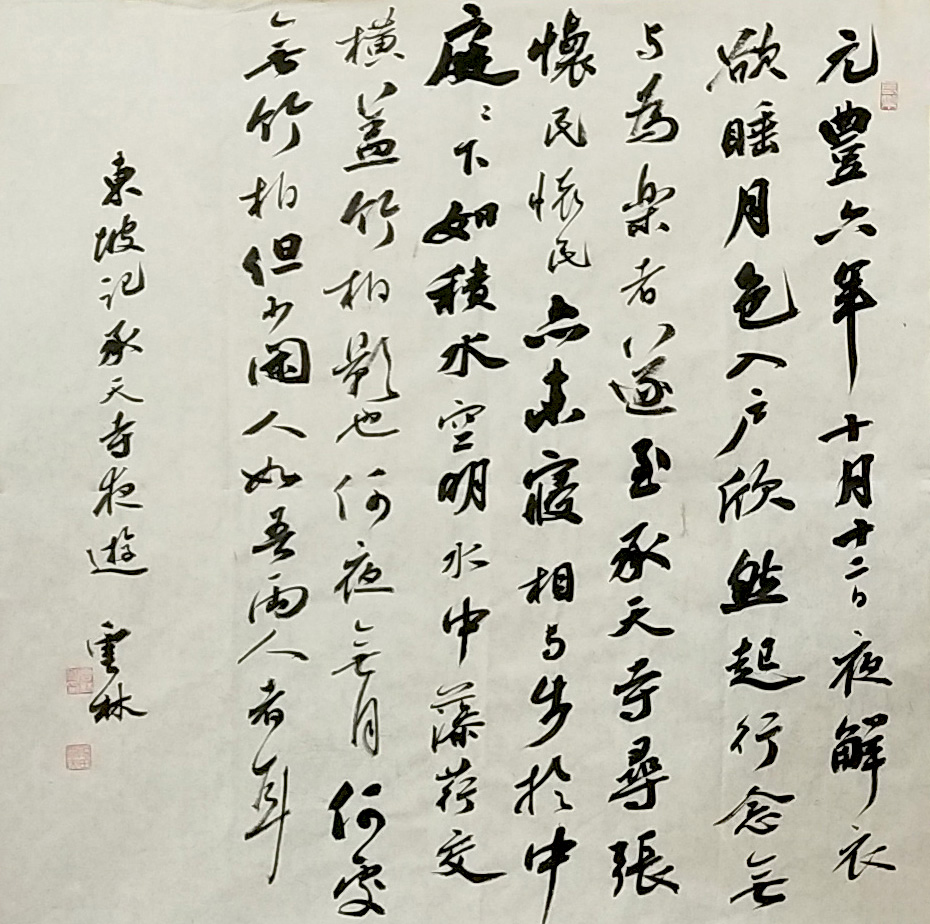 元豐六年十月十二日夜解衣
欲睡月色入户欣然起行念无
与為樂者遂至承天寺尋張
懷民懷民亦未寢相与步於中
庭〻下如積水空明水中藻荇交
横蓋竹柏影也何夜无月何处
无竹柏但少閒人如吾兩人者耳
東坡记承天寺夜遊 雲林